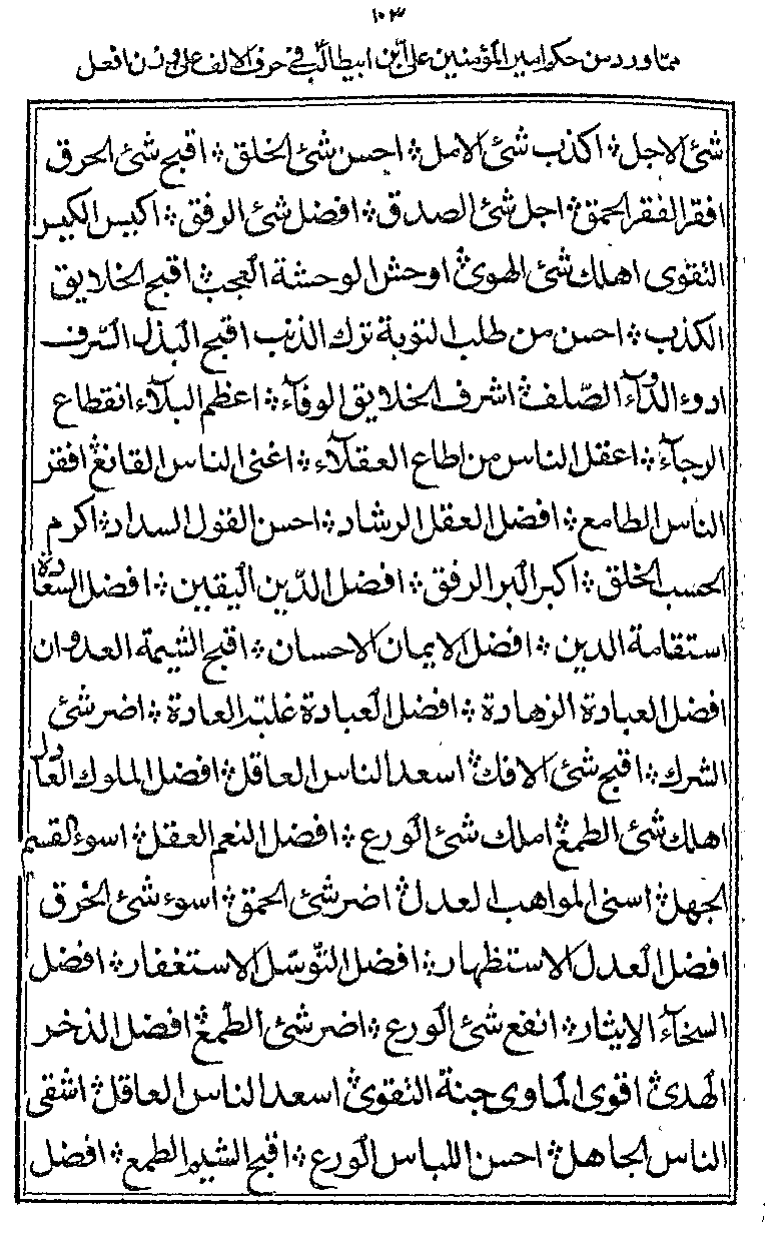 ١٠٣
مما ورد من حكم امير المؤمنين على ابن ابيطالب فى حرف الالف على وزن افعل
شئ الاجل ؞ اكذب شئ الامل ؞ احسن شئ الخلق ؞ اقبح شئ الخرق
افقر الفقر الحمق ؞ اجل شئ الصدق ؞ افضل شئ الرفق ؞ اكيس الكيس
التقوى اهلك شئ الهوى ؞ اوحش الوحشة العجب ؞ اقبح الخلايق
الكذب ؞ احسن من طلب التوبة ترك الذنب اقبح البذل السّرف
ادوء الدّآء الصّلف ؞ اشرف الخلايق الوفآء ؞ اعظم البلآء انقطاع
الرجآء ؞ اعقل الناس من اطاع العقلآء ؞ اغنى الناس القانع ؞ افقر
الناس الطامع ؞ افضل العقل الرشاد ؞ احسن القول السداد ؞ اكرم
الحسب الخلق ؞ اكبر البر الرفق ؞ افضل الدّين اليقين ؞ افضل السعادة
استقامة الدين ؞ افضل الايمان الاحسان ؞ اقبح الشيمة العدوان
افضل العبادة الزهادة ؞ افضل العبادة غلبة العادة ؞ اضر شئ
الشرك ؞ اقبح شئ الافك ؞ اسعد الناس العاقل ؞ افضل الملوك العادل
اهلك شئ الطمع ؞ املك شئ الورع ؞ افضل النعم العقل ؞ اسوء القسم
الجهل ؞ اسنى المواهب العدل ؞ اضر شئ الحمق ؞ اسوء شئ الخرق
افضل العدل الاستظهار ؞ افضل التّوسّل الاستغفار ؞ افضل
السخآء الايثار ؞ انفع شئ الورع ؞ اضر شئ الطمع ؞ افضل الذخر
الهدى ؞ اقوى الماوى جنة التقوى ؞ اسعد الناس العاقل ؞ اشقى
الناس الجاهل ؞ احسن اللباس الورع ؞ اقبح الشيم الطمع ؞ افضل